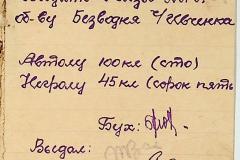 об-ву Безводня Шевченка
Автолу 100 кл (сто)
Нигролу 45 кл (сорок пять
Бух:
Выдал: